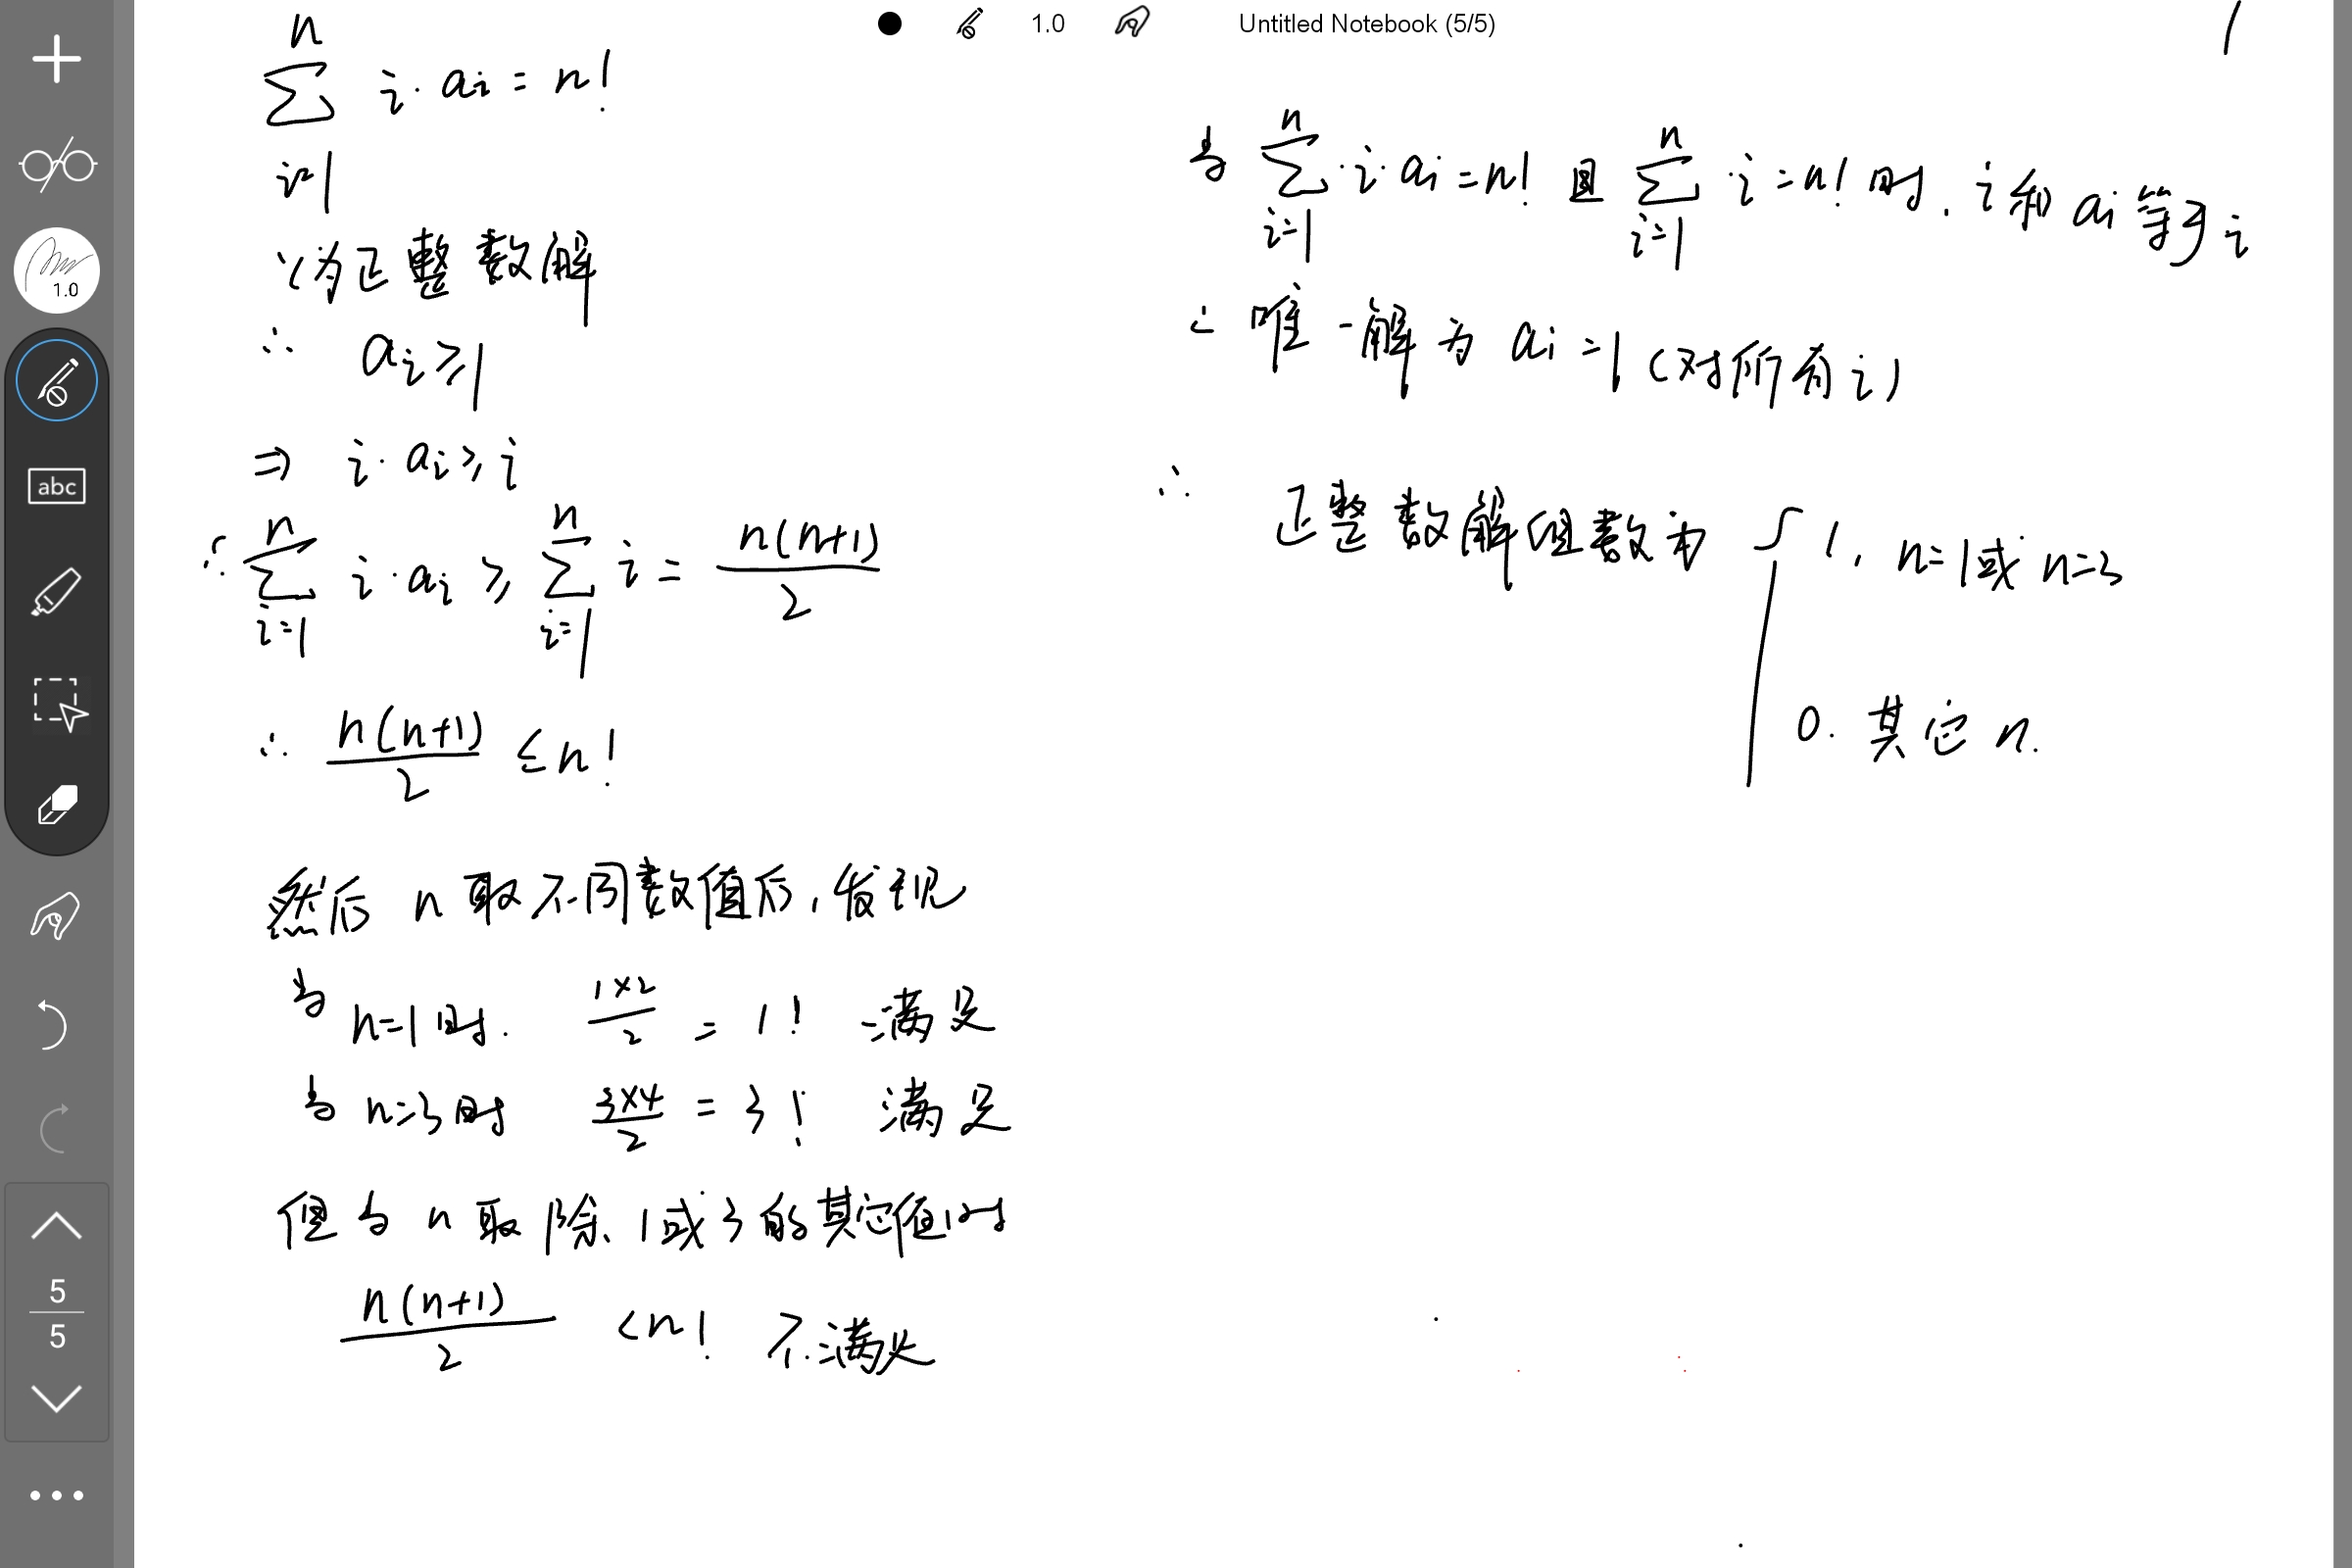 1.0
Untitled Notebook (5/5)
1.0
abc
5
5
n
∑ i·aᵢ = n!
i=1
∵ 为正整数解
∴ aᵢ ≥ 1
⇒ i·aᵢ ≥ i
∴ ∑_{i=1}^{n} i·aᵢ ≥ ∑_{i=1}^{n} i = n(n+1)/2
∴ n(n+1)/2 ≤ n!
然后 n 取不同数值后，发现
当 n=1时. 1×2/2 = 1! 满足
当 n=3时 3×4/2 = 3! 满足
但当 n 取除 1或3的其它值时
n(n+1)/2 < n! 不满足
当 ∑_{i=1}^{n} ·i·aᵢ = n! 且 ∑_{i=1}^{n} ·i = n! 时. i和 aᵢ 等于 i
∴ 唯一解为 aᵢ = 1 (对所有i)
∴ 正整数解组数为 { 1, n=1或 n=3
0. 其它 n.